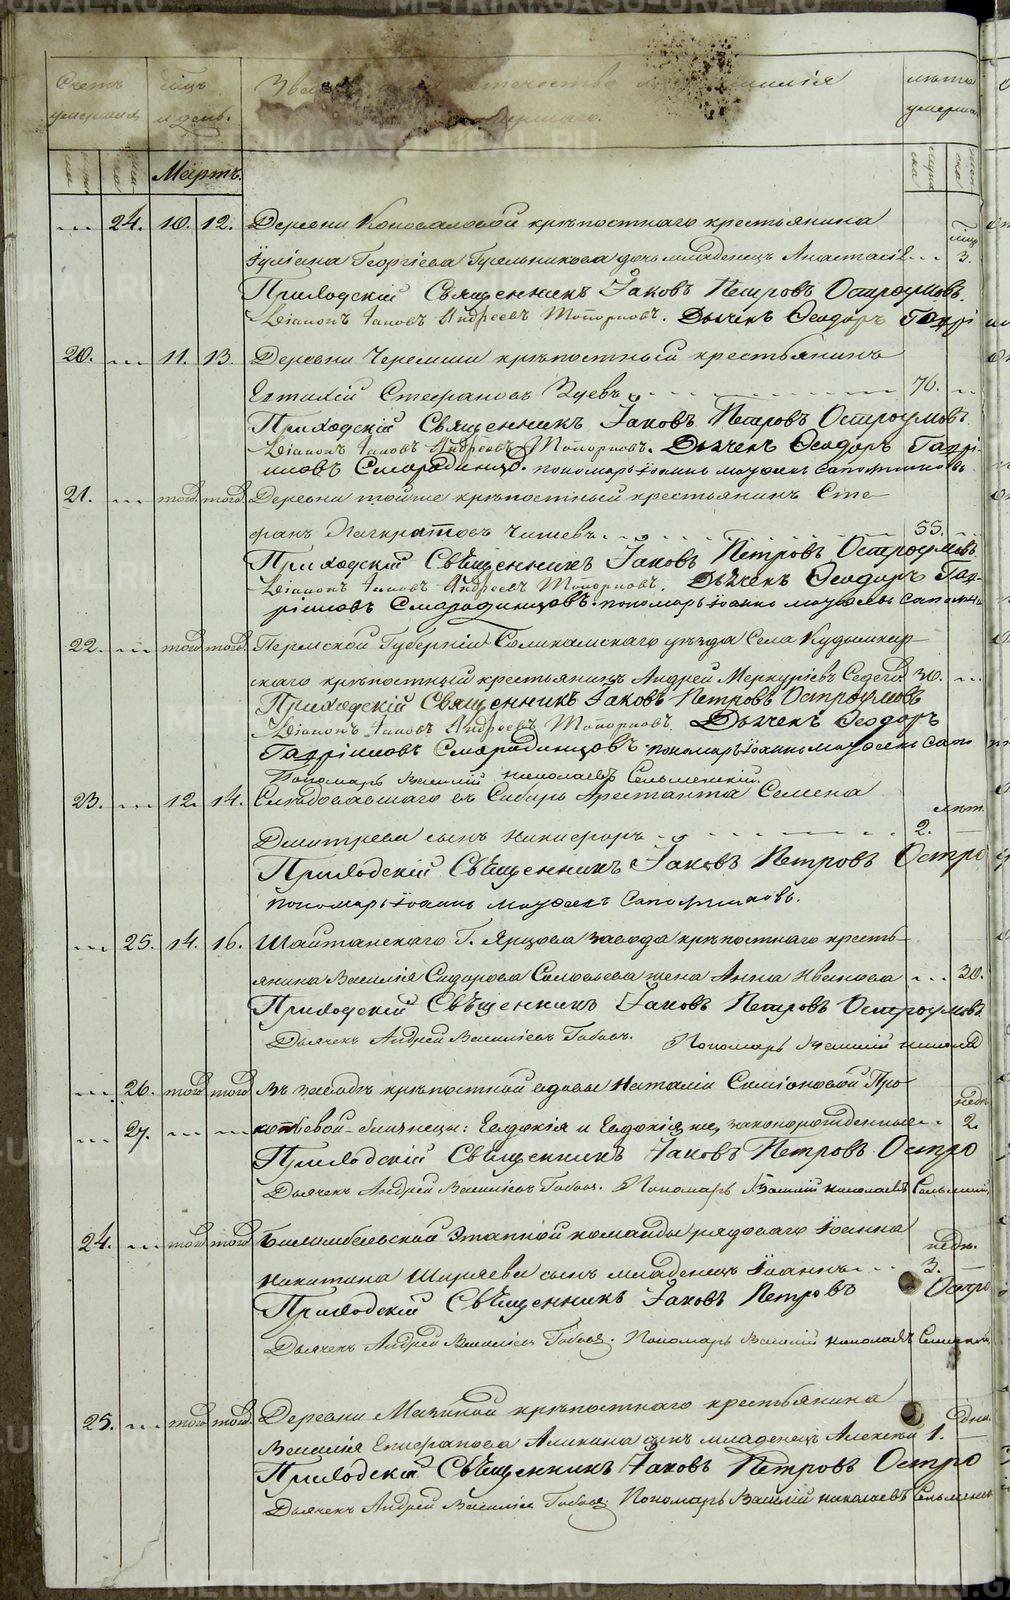 Счетъ умершихъ
мѣсяцъ и день.
Званіе, отечество фамилія
умершаго.
лѣта умерша
Мартъ.
24. 10. 12. Деревни Коноваловой крѣпостнаго крестьянина
Іуліана Георгіева дочь младенецъ Анастасія 3. мѣс.
Приходскій Священникъ Іаковъ Петровъ Остроумовъ.
Діаконъ Іаковъ Андреевъ Топорковъ. Дьячекъ Ѳеодоръ Гаврі
20. 11. 13. Деревни Черемши крѣпостный крестьянинъ
Евтихій Стефановъ Зуевъ 76.
Приходскій Священникъ Іаковъ Петровъ Остроумовъ
Діаконъ Іаковъ Андреевъ Топорковъ. Дьячекъ Ѳеодоръ Гаврі-
иловъ Смородинцовъ. пономарь Іоаннъ Моѵсеевъ Сапожниковъ
21. того того Деревни тойже крѣпостный крестьянинъ Сте-
фанъ Панкратовъ 55.
Приходскій Священникъ Іаковъ Петровъ Остроумовъ
Діаконъ Іаковъ Андреевъ Топорковъ. Дьячекъ Ѳеодоръ Гав-
ріиловъ Смородинцовъ. пономарь Іоаннъ Моѵсеевъ Сапожни
22. того того Пермской Губерніи Соликамскаго уѣзда Села Кудымкор-
скаго крѣпостный крестьянинъ Андрей Меркуріевъ 30.
Приходскій Священникъ Іаковъ Петровъ Остроумовъ
Діаконъ Іаковъ Андреевъ Топорковъ. Дьячекъ Ѳеодоръ
Гавріиловъ Смородинцовъ пономарь Іоаннъ Моѵсеевъ Сапо
Пономарь Василій Николаевъ Сельменскій.
23. 12. 14. Слѣдовавшаго въ Сибирь Арестанта Семена
Дмитрева сынъ Никифоръ 2. лѣт.
Приходскій Священникъ Іаковъ Петровъ Остро
пономарь Іоаннъ Моѵсеевъ Сапожниковъ.
25. 14. 16. Шайтанскаго Г. Ярцова завода крѣпостнаго кресть-
янина Василія Сидорова Соловьева жена Анна Иванова 30.
Приходскій Священникъ Іаковъ Петровъ Остроумовъ
Дьячекъ Андрей Василіевъ Пономарь Василій Николаев
26. того того Въ заводѣ крѣпостной вдовы Наталіи Симіоновой Про-
27. копьевой близнецы: Евдокія и Евдокія, незаконорожденные 2. недѣ.
Приходскій Священникъ Іаковъ Петровъ Остро
Дьячекъ Андрей Василіевъ Пономарь Василій Николаевъ Сельменскій
24. того того Билимбаевской Этапной команды рядоваго Іоанна
Никитина Ширяева сынъ младенецъ Іоаннъ 3. недѣ.
Приходскій Священникъ Іаковъ Петровъ Остро
Дьячекъ Андрей Василіевъ Пономарь Василій Николаевъ Сельменской
25. того того Деревни крѣпостнаго крестьянина
Василія сынъ младенецъ Алексѣй 1. дня.
Приходскій Священникъ Іаковъ Петровъ Остро
Дьячекъ Андрей Василіевъ Пономарь Василій Николаевъ Сельменск
METRIKI.GASO-URAL.RU